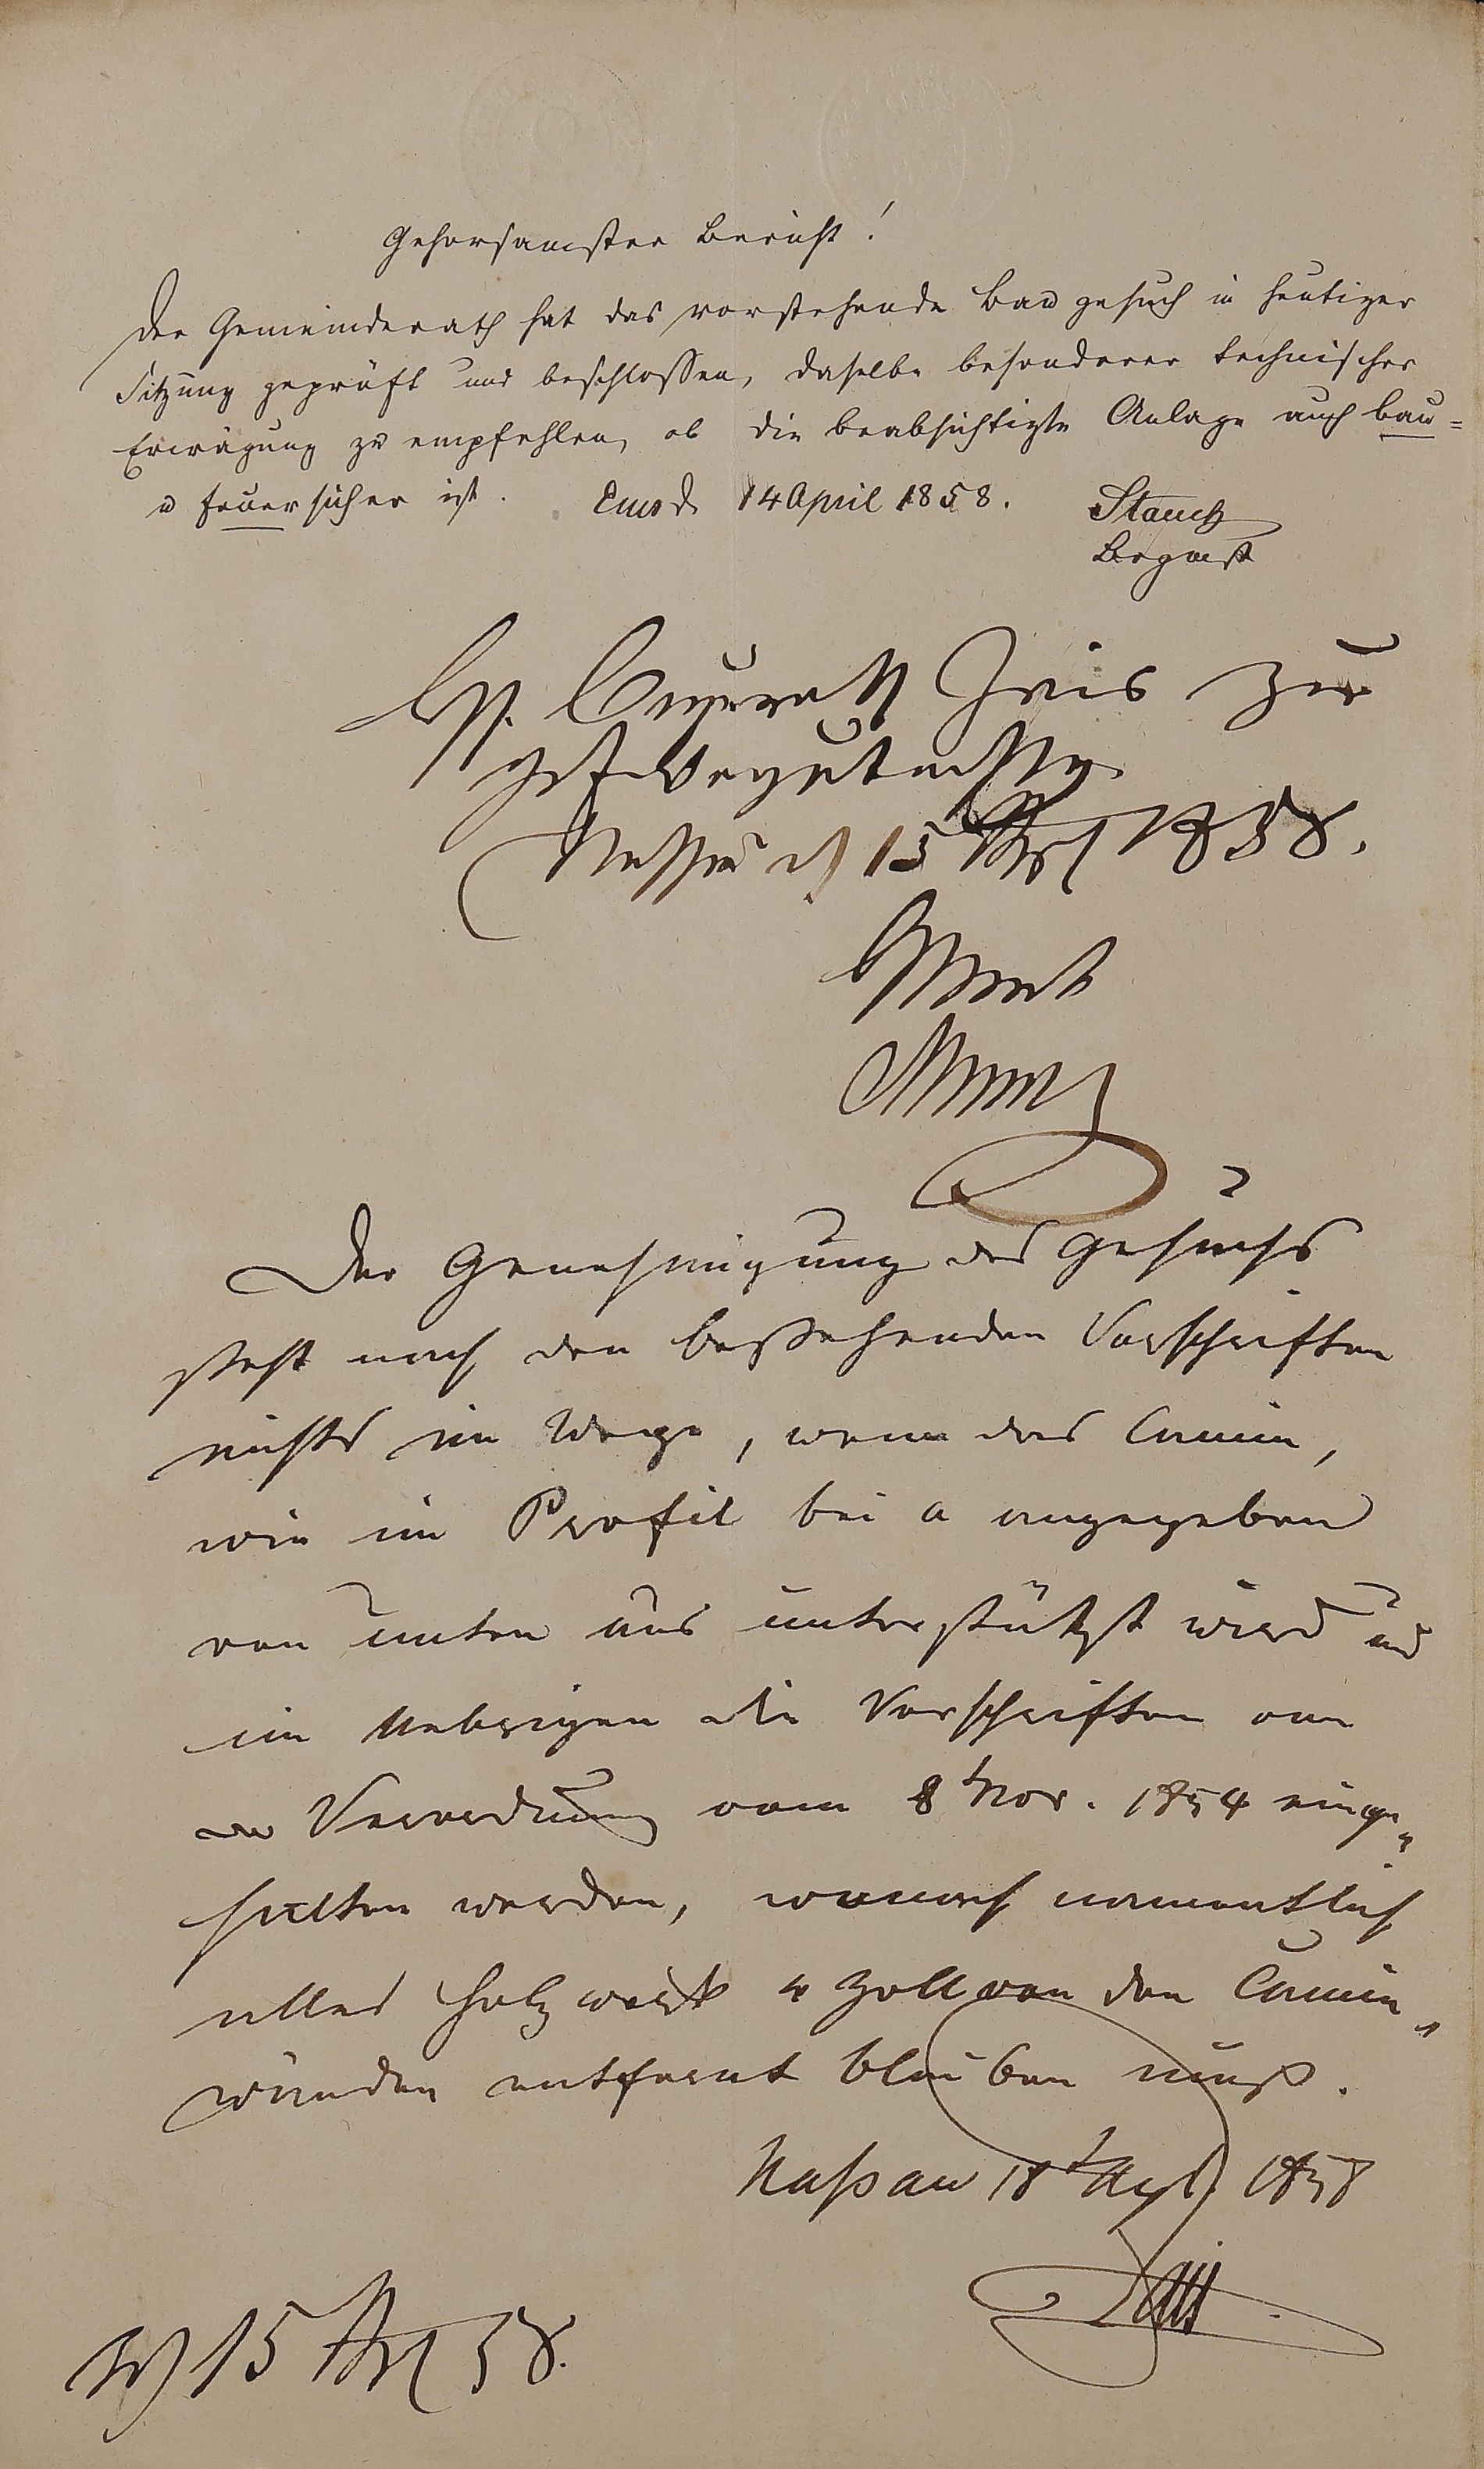 Gehorsamster Bericht!
Der Gemeinderath hat das vorstehende Bau gesuch in heutiger
Sitzung geprüft und beschlossen, dasselbe besonderer technischer
Erwägung zu empfehlen, ob die beabsichtigte Anlage auch bau=
u feuersicher ist. Ems d. 14 April 1858.
Stauch
H. Baurath Zais zur
gef. Begutachtg.
Nassau d 15 Apl 1858.
Amt
Der Genehmigung des Gesuchs
steht nach den bestehenden Vorschriften
nichts im Wege, wenn das Camin,
wie im Profil bei a angegeben
von unten aus unterstützt wird und
im Uebrigen die Vorschriften
der Verordnung vom 8t Nov. 1854 einge=
halten werden, wonach namentlich
alles Holzwerk 4 Zoll von den Camin„
wänden entfernt bleiben muß.
Naßau 18t Apl. 1858
Zais
15 Apl 58.